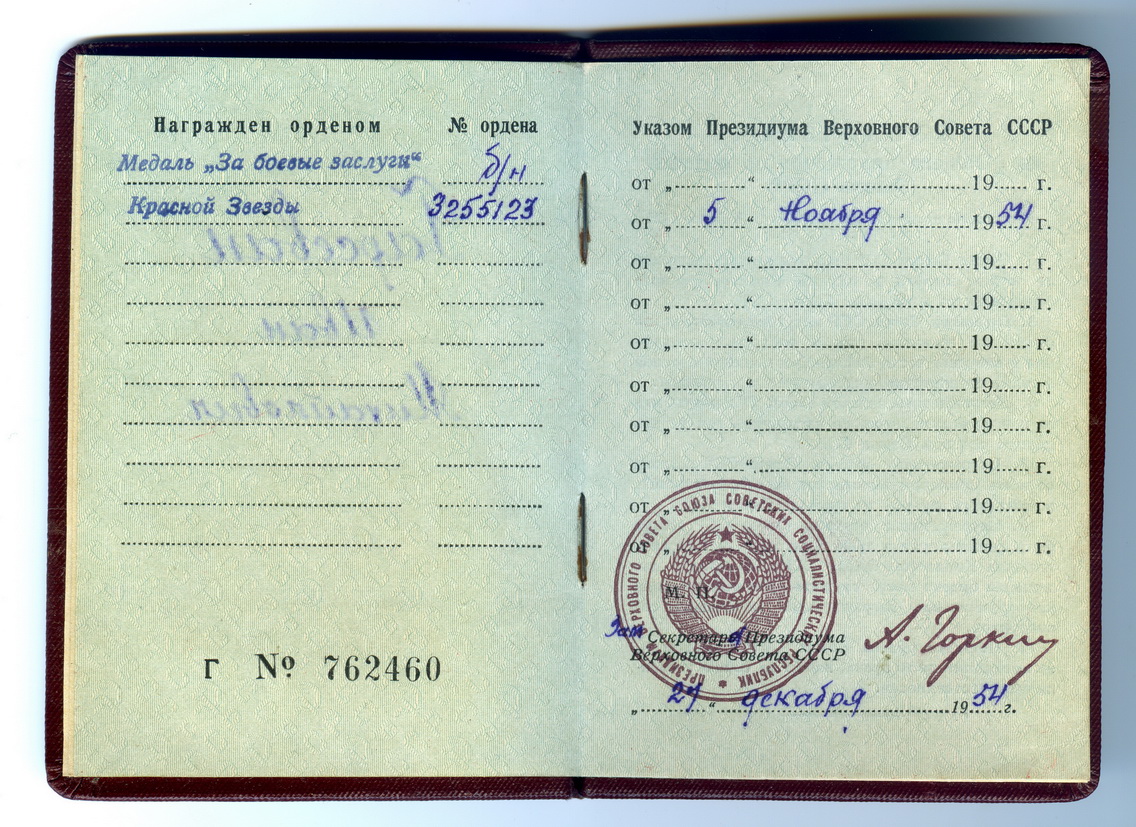 Награжден орденом № ордена
Медаль „За боевые заслуги“ б/н
Красной Звезды 3255123
Г № 762460
Указом Президиума Верховного Совета СССР
от „ “ 19 г.
от „ 5 “ Ноября 1954 г.
от „ “ 19 г.
от „ “ 19 г.
от „ “ 19 г.
от „ “ 19 г.
от „ “ 19 г.
от „ “ 19 г.
от „ “ 19 г.
от „ “ 19 г.
ПРЕЗИДИУМ ВЕРХОВНОГО СОВЕТА СОЮЗА СОВЕТСКИХ СОЦИАЛИСТИЧЕСКИХ РЕСПУБЛИК
М. П.
Зам Секретаря Президиума
Верховного Совета СССР
А. Горкин
„ “ декабря 1954 г.